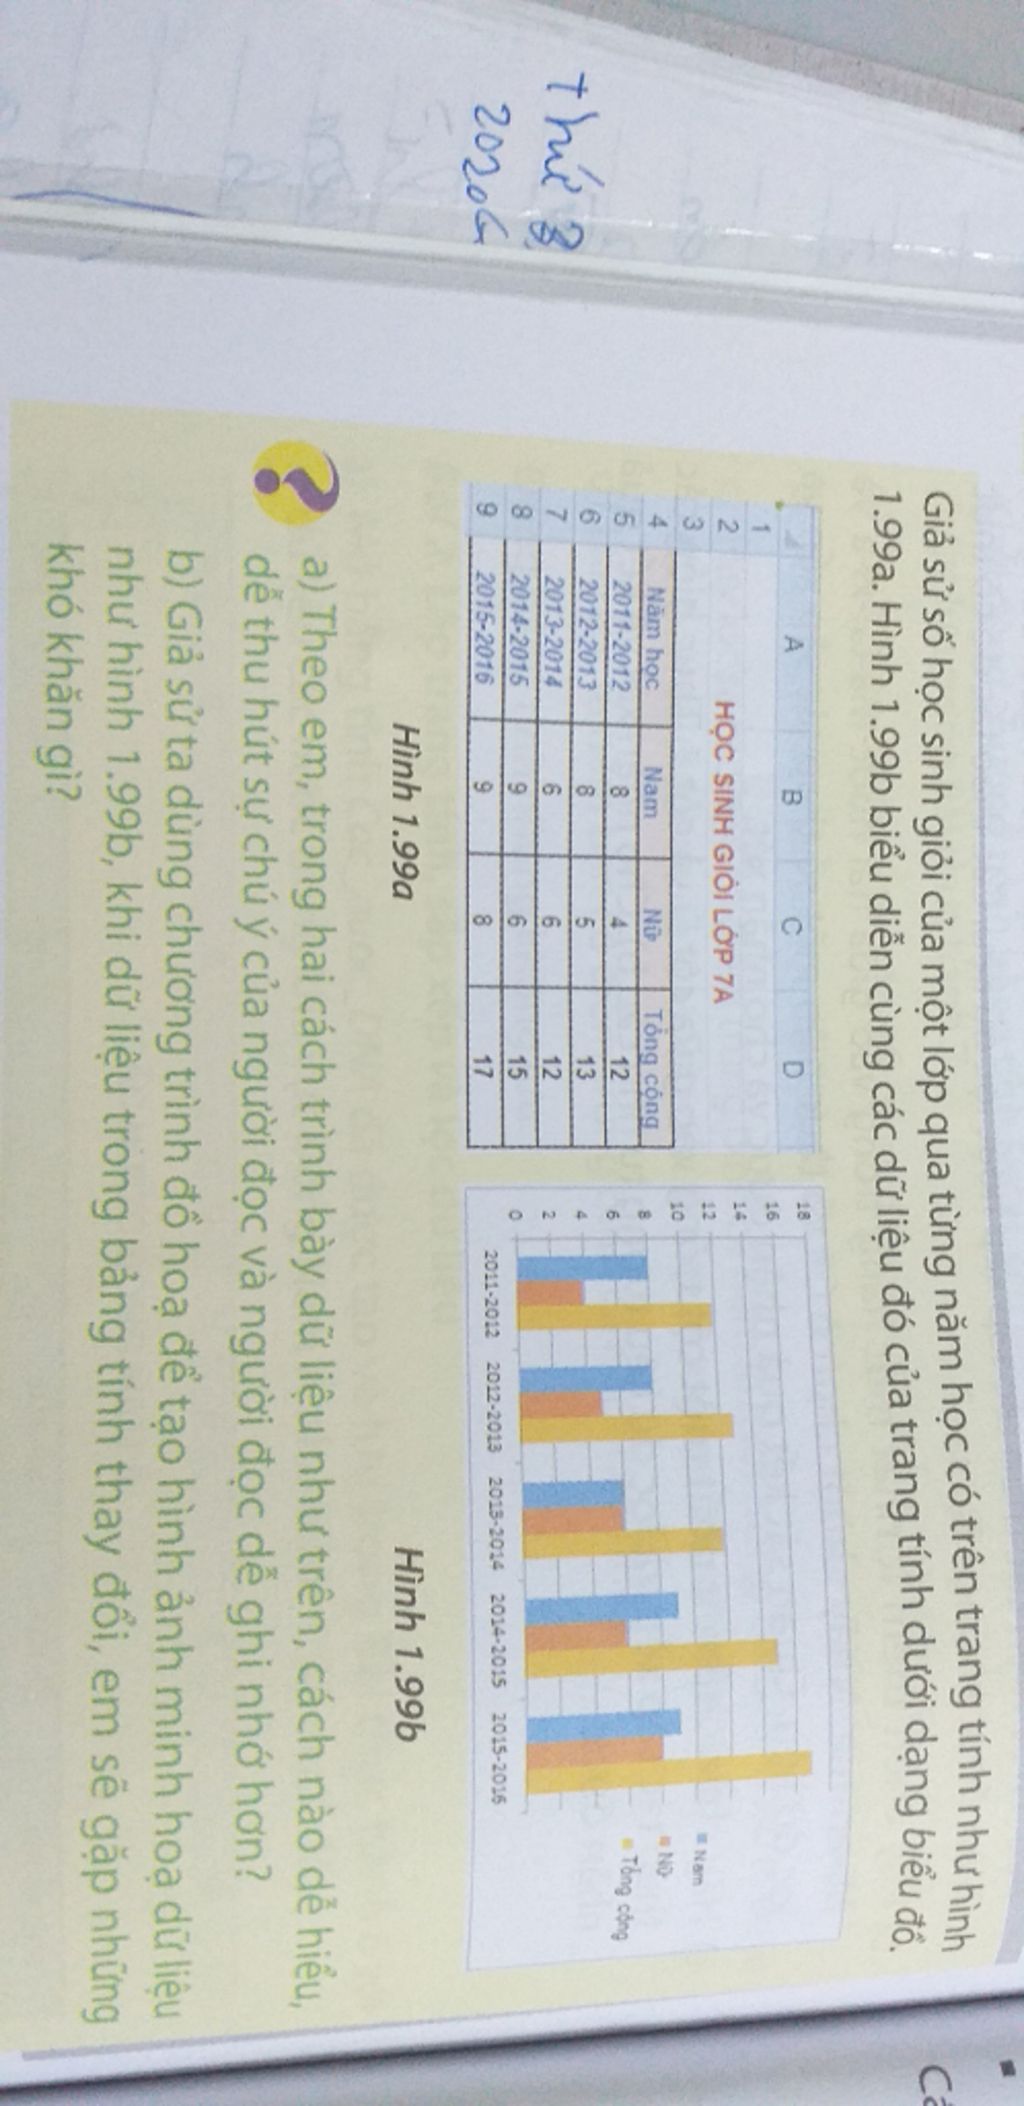 Giả sử số học sinh giỏi của một lớp qua từng năm học có trên trang tính như hình
1.99a. Hình 1.99b biểu diễn cùng các dữ liệu đó của trang tính dưới dạng biểu đồ.
A B C D
1
2 HỌC SINH GIỎI LỚP 7A
3
4 Năm học Nam Nữ Tổng cộng
5 2011-2012 8 4 12
6 2012-2013 8 5 13
7 2013-2014 6 6 12
8 2014-2015 9 6 15
9 2015-2016 9 8 17
18
16
14
12
10
8
6
4
2
0
2011-2012 2012-2013 2013-2014 2014-2015 2015-2016
Nam
Nữ
Tổng cộng
Hình 1.99a
Hình 1.99b
a) Theo em, trong hai cách trình bày dữ liệu như trên, cách nào dễ hiểu,
dễ thu hút sự chú ý của người đọc và người đọc dễ ghi nhớ hơn?
b) Giả sử ta dùng chương trình đồ hoạ để tạo hình ảnh minh hoạ dữ liệu
như hình 1.99b, khi dữ liệu trong bảng tính thay đổi, em sẽ gặp những
khó khăn gì?
Thứ